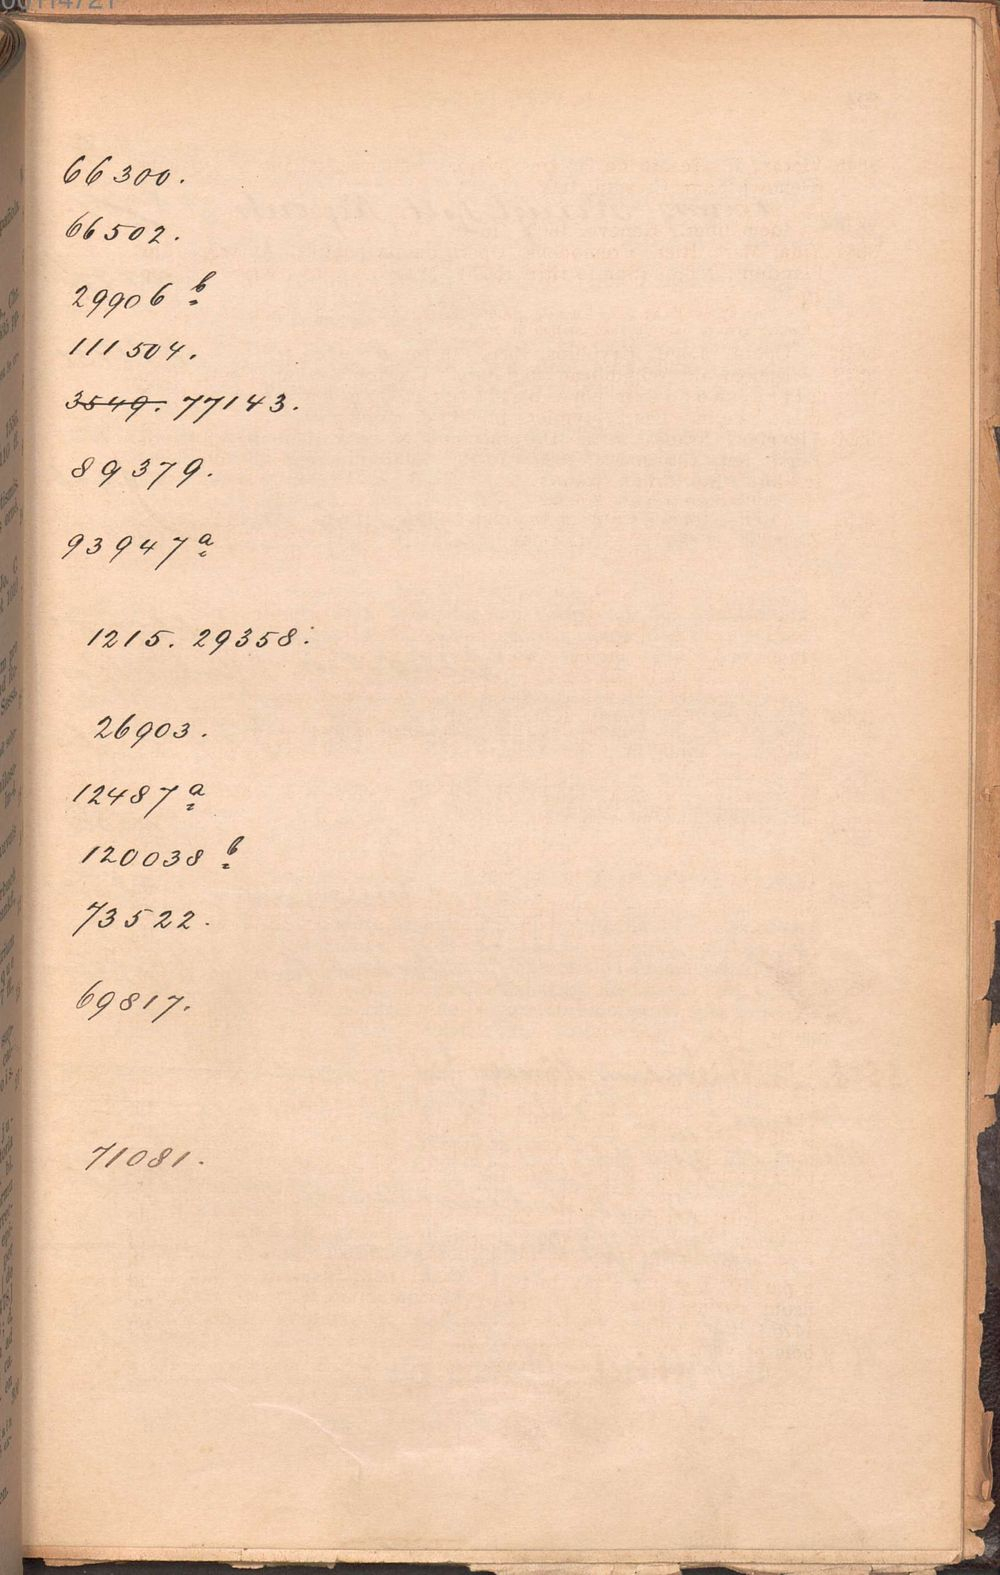 66300.
66502.
29906 b
111504.
3549. 77143.
89379.
93947 a
1215. 29358.
26903.
12487 a
120038 b
73522.
69817.
71081.